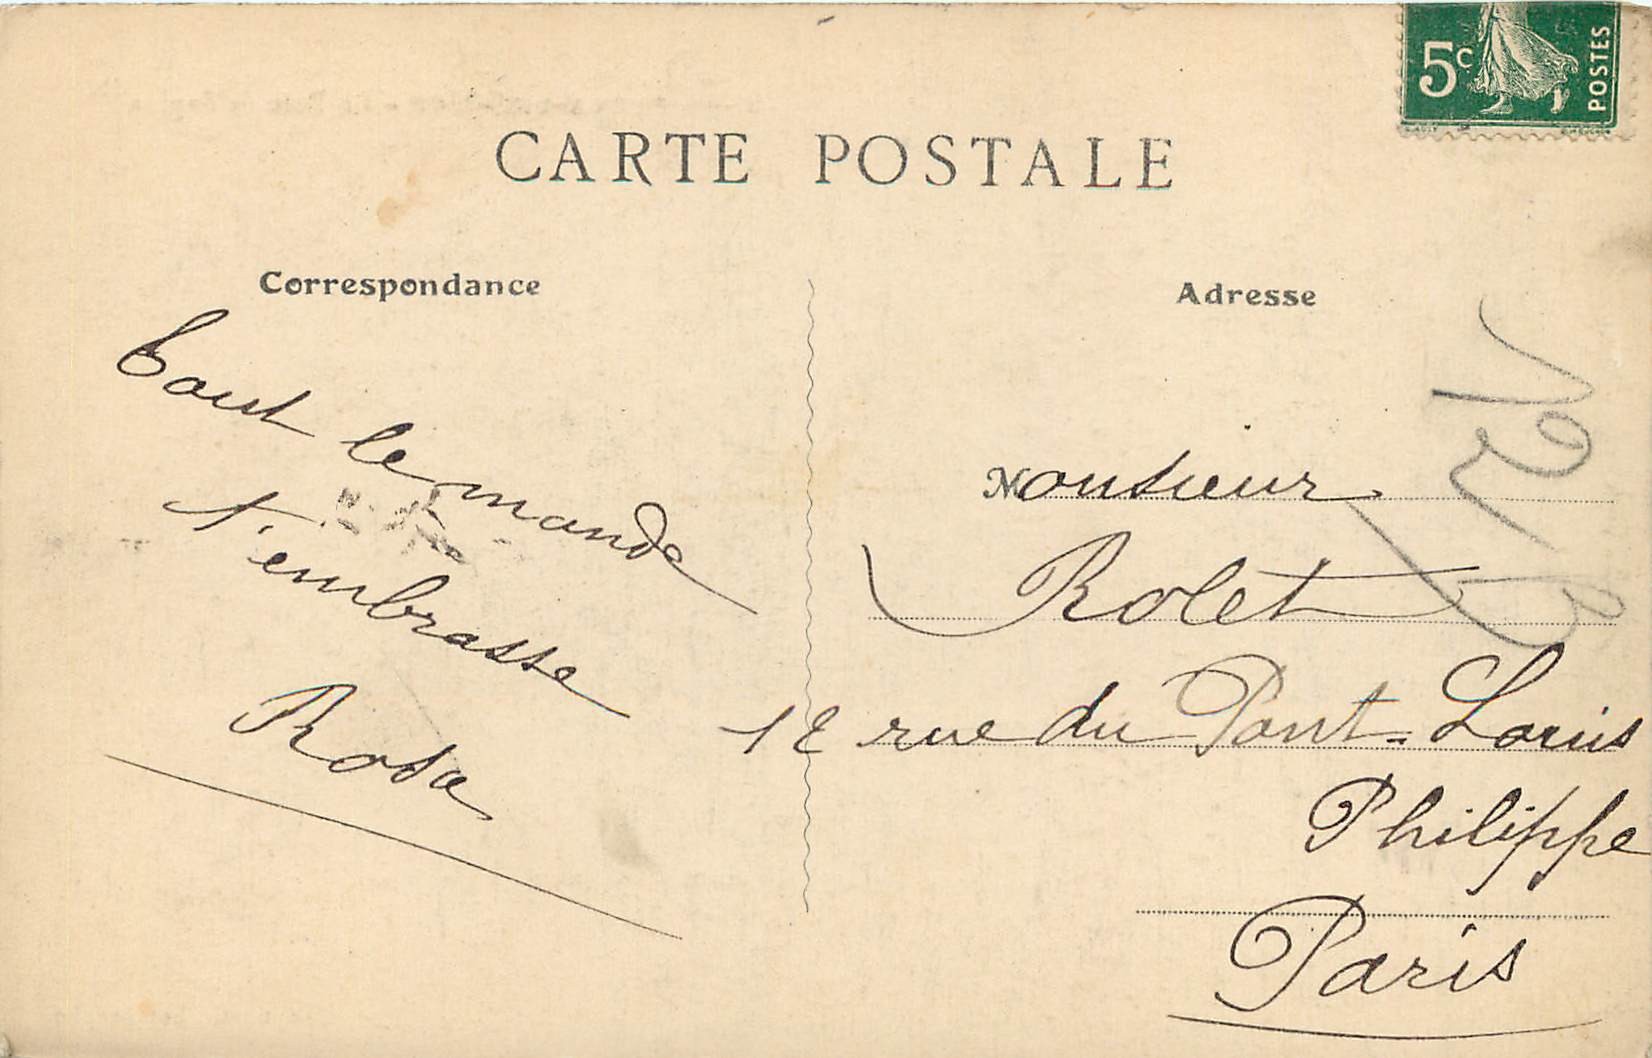 5c POSTES
CARTE POSTALE
Correspondance
Adresse
tout le monde
t'embrasse
Rosa
Monsieur
Rolet
12 rue du Pont-Louis
Philippe
Paris